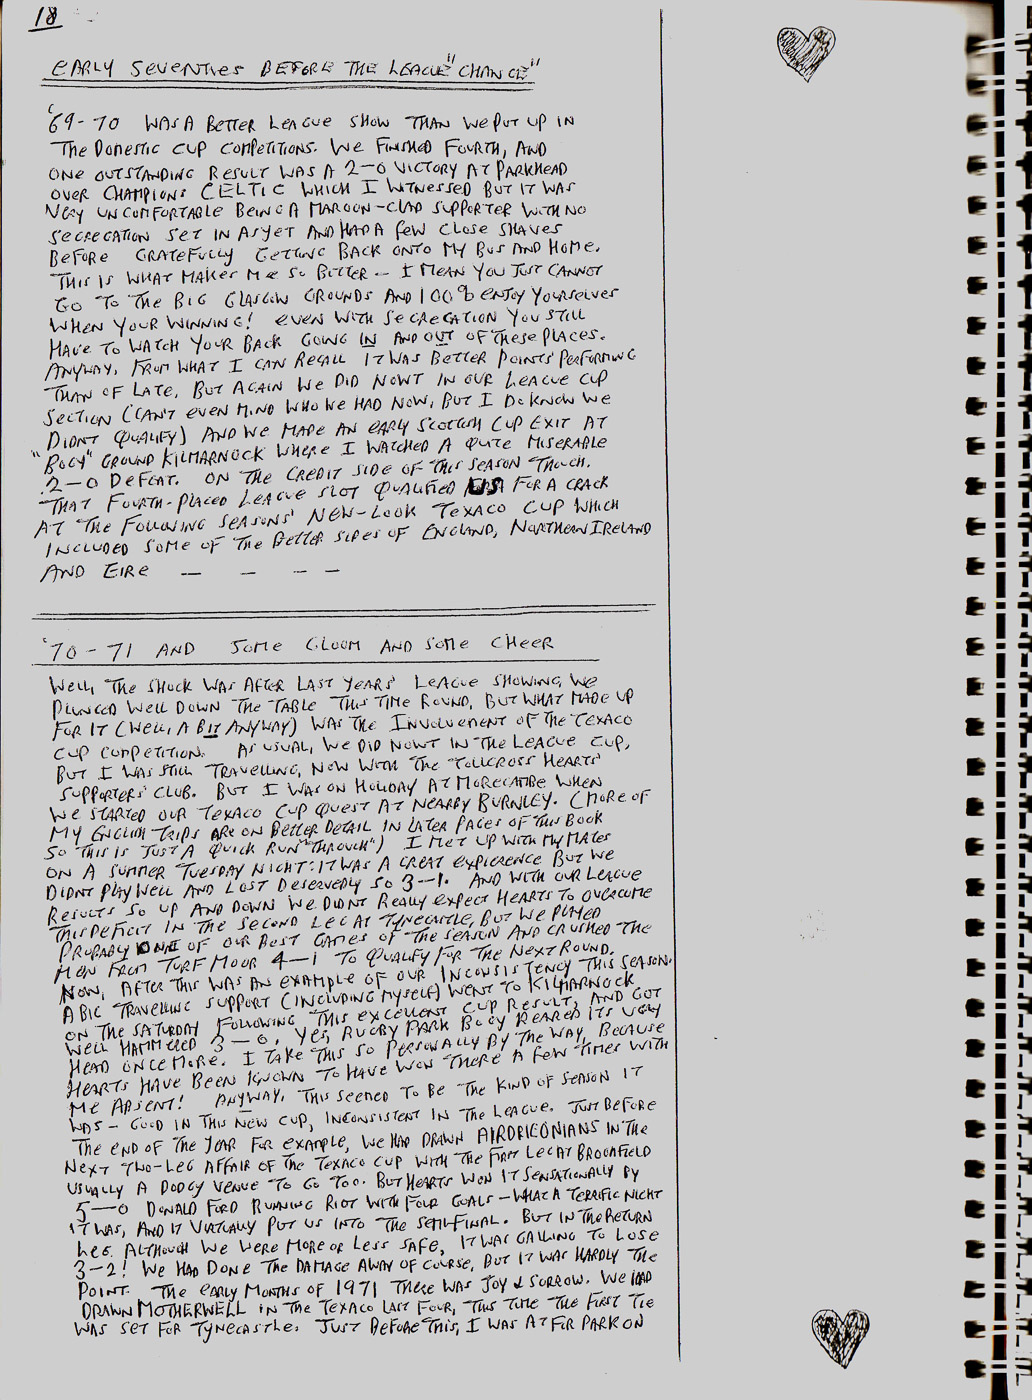 18
EARLY SEVENTIES BEFORE THE LEAGUE "CHANGE"
'69-70 WAS A BETTER LEAGUE SHOW THAN WE PUT UP IN
THE DOMESTIC CUP COMPETITIONS. WE FINISHED FOURTH, AND
ONE OUTSTANDING RESULT WAS A 2-0 VICTORY AT PARKHEAD
OVER CHAMPIONS CELTIC WHICH I WITNESSED BUT IT WAS
VERY UNCOMFORTABLE BEING A MAROON-CLAD SUPPORTER WITH NO
SEGREGATION SET IN AS YET AND HAD A FEW CLOSE SHAVES
BEFORE GRATEFULLY GETTING BACK ONTO MY BUS AND HOME.
THIS IS WHAT MAKES ME SO BITTER - I MEAN YOU JUST CANNOT
GO TO THE BIG GLASGOW GROUNDS AND 100% ENJOY YOURSELVES
WHEN YOUR WINNING! EVEN WITH SEGREGATION YOU STILL
HAVE TO WATCH YOUR BACK GOING IN AND OUT OF THESE PLACES.
ANYWAY, FROM WHAT I CAN RECALL IT WAS BETTER POINTS' PERFORMING
THAN OF LATE, BUT AGAIN WE DID NOWT IN OUR LEAGUE CUP
SECTION (CAN'T EVEN MIND WHO WE HAD NOW, BUT I DO KNOW WE
DIDNT QUALIFY) AND WE MADE AN EARLY SCOTTISH CUP EXIT AT
"BOGY" GROUND KILMARNOCK WHERE I WATCHED A QUITE MISERABLE
2-0 DEFEAT. ON THE CREDIT SIDE OF THIS SEASON THOUGH,
THAT FOURTH-PLACED LEAGUE SLOT QUALIFIED US FOR A CRACK
AT THE FOLLOWING SEASONS' NEW-LOOK TEXACO CUP WHICH
INCLUDED SOME OF THE BETTER SIDES OF ENGLAND, NORTHERN IRELAND
AND EIRE - - - -
'70-71 AND SOME GLOOM AND SOME CHEER
WELL, THE SHOCK WAS AFTER LAST YEARS' LEAGUE SHOWING, WE
PLUNGED WELL DOWN THE TABLE THIS TIME ROUND, BUT WHAT MADE UP
FOR IT (WELL, A BIT ANYWAY) WAS THE INVOLVEMENT OF THE TEXACO
CUP COMPETITION. AS USUAL, WE DID NOWT IN THE LEAGUE CUP,
BUT I WAS STILL TRAVELLING, NOW WITH THE TOLLCROSS HEARTS
SUPPORTERS' CLUB. BUT I WAS ON HOLIDAY AT MORECAMBE WHEN
WE STARTED OUR TEXACO CUP QUEST AT NEARBY BURNLEY. (MORE OF
MY ENGLISH TRIPS ARE ON BETTER DETAIL IN LATER PAGES OF THIS BOOK
SO THIS IS JUST A QUICK RUN "THROUGH") I MET UP WITH MY MATES
ON A SUMMER TUESDAY NIGHT. IT WAS A GREAT EXPIERENCE BUT WE
DIDNT PLAY WELL AND LOST DESERVEDLY SO 3-1. AND WITH OUR LEAGUE
RESULTS SO UP AND DOWN WE DIDNT REALLY EXPECT HEARTS TO OVERCOME
THIS DEFICIT IN THE SECOND LEG AT TYNECASTLE, BUT WE PLAYED
PROBABLY ONE OF OUR BEST GAMES OF THE SEASON AND CRUSHED THE
MEN FROM TURF MOOR 4-1 TO QUALIFY FOR THE NEXT ROUND.
NOW, AFTER THIS WAS AN EXAMPLE OF OUR INCONSISTENCY THIS SEASON.
A BIG TRAVELLING SUPPORT (INCLUDING MYSELF) WENT TO KILMARNOCK
ON THE SATURDAY FOLLOWING THIS EXCELLENT CUP RESULT, AND GOT
WELL HAMMERED 3-0. YES, RUGBY PARK BOGY REARED ITS UGLY
HEAD ONCE MORE. I TAKE THIS SO PERSONALLY BY THE WAY, BECAUSE
HEARTS HAVE BEEN KNOWN TO HAVE WON THERE A FEW TIMES WITH
ME ABSENT! ANYWAY, THIS SEEMED TO BE THE KIND OF SEASON IT
WAS - GOOD IN THIS NEW CUP, INCONSISTENT IN THE LEAGUE. JUST BEFORE
THE END OF THE YEAR FOR EXAMPLE, WE HAD DRAWN AIRDRIEONIANS IN THE
NEXT TWO-LEG AFFAIR OF THE TEXACO CUP WITH THE FIRST LEG AT BROOMFIELD
USUALLY A DODGY VENUE TO GO TOO. BUT HEARTS WON IT SENSATIONALLY BY
5-0 DONALD FORD RUNNING RIOT WITH FOUR GOALS - WHAT A TERRIFIC NIGHT
IT WAS, AND IT VIRTUALLY PUT US INTO THE SEMI-FINAL. BUT IN THE RETURN
LEG, ALTHOUGH WE WERE MORE OR LESS SAFE, IT WAS GALLING TO LOSE
3-2! WE HAD DONE THE DAMAGE AWAY OF COURSE, BUT IT WAS HARDLY THE
POINT. THE EARLY MONTHS OF 1971 THERE WAS JOY & SORROW. WE HAD
DRAWN MOTHERWELL IN THE TEXACO LAST FOUR, THIS TIME THE FIRST TIE
WAS SET FOR TYNECASTLE. JUST BEFORE THIS, I WAS AT FIR PARK ON